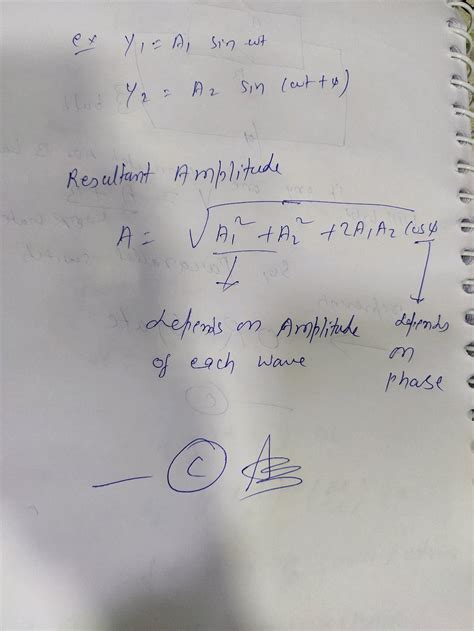 ex y₁ = A₁ sin ωt
y₂ = A₂ sin (ωt + φ)
Resultant Amplitude
A = √A₁² + A₂² + 2A₁A₂ cosφ
↓ ↓
depends on Amplitude
of each wave
depends
on
phase
— Ⓒ